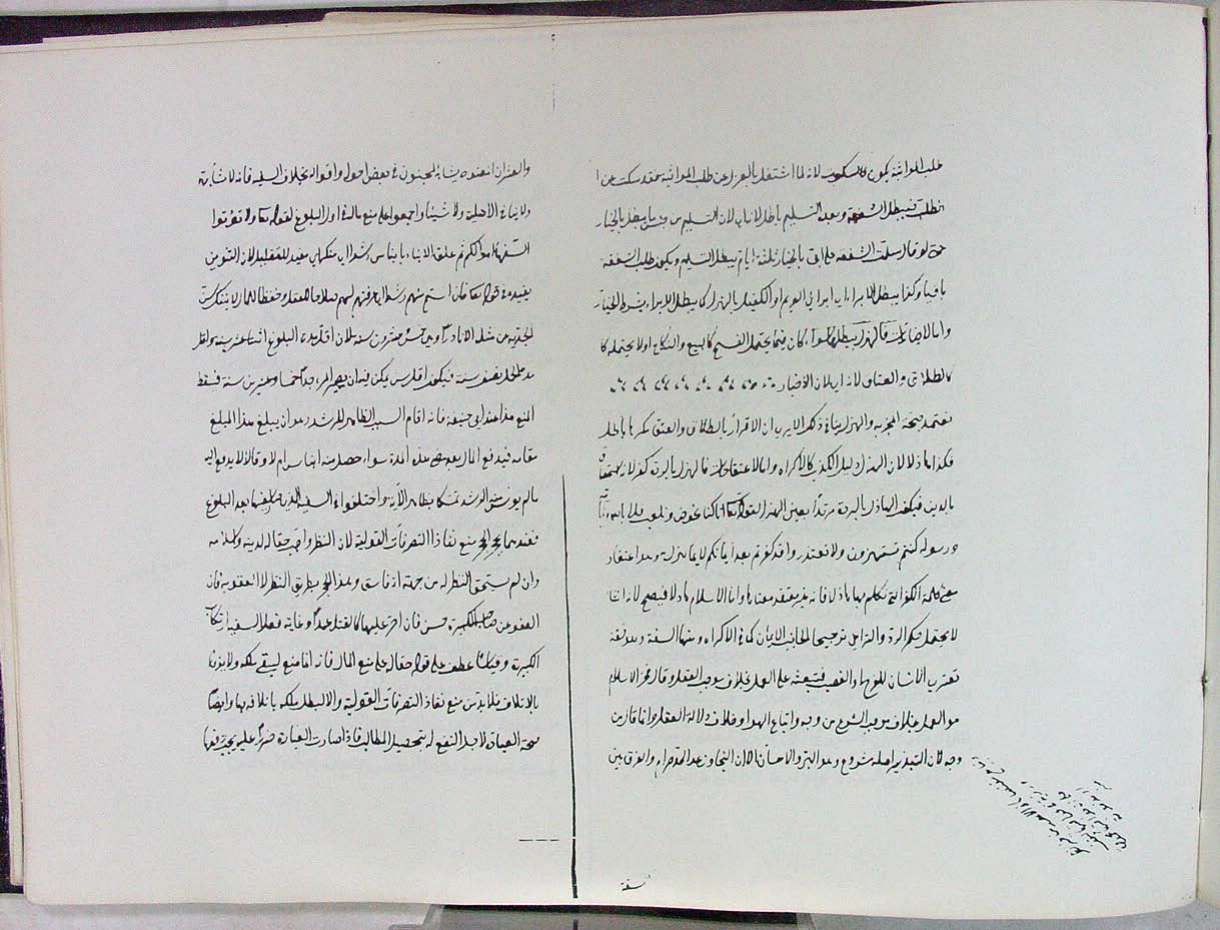 طلب المواثبة يكون كالسكوت لانه لما اشتغل بالهزل عن طلب المواثبة فقد سكت عن
الطلب فيبطل الشفعة وبعد التسليم باطل لان التسليم من جنس ما يبطل بالخيار
حتى لو قال سلمت الشفعة على انى بالخيار ثلثة ايام يبطل التسليم ويكون طلب الشفعة
باقيا وكذا يبطل الابراء اى ابراء الغريم او الكفيل بالهزل كما يبطل الابراء بشرط الخيار
واما الاخبارات فالهزل يبطلها سواء كان فيما يحتمل الفسخ كالبيع والنكاح او لا يحتمله كا
كالطلاق والعتاق لانه اى لان الاخبار
يعتمد صحة المخبر به والهزل ينافى ذلك الا يرى ان الاقرار بالطلاق والعتق مكرها باطل
فكذا هاذلا لان الهزل دليل الكذب كالاكراه واما الاعتقادات فالهزل بالردة كفر لانه استخفاف
بالدين فيكون الهاذل بالردة مرتدا بعين الهزل لقوله تعالى انما كنا نخوض ونلعب قل ابالله وآياته
ورسوله كنتم تستهزؤن لا تعتذروا قد كفرتم بعد ايمانكم لا بما هزل به وهو اعتقاد
معنى كلمة الكفر التى تكلم بها هاذلا فانه غير معتقد معناها واما الاسلام هاذلا فيصح لانه انشاء
لا يحتمل حكمه الرد والتراخى ترجيحا لجانب الايمان كما فى الاكراه ومنها السفه وهو خفة
تعترى الانسان للفرح او الغضب فتبعثه على العمل بخلاف موجب العقل وقال فخر الاسلام
هو العمل بخلاف موجب الشرع من وجه واتباع الهوا وخلاف دلالة العقل وانما قال من
وجه لان التبذير اصله مشروع وهو البر والاحسان الا ان التجاوز عن الحد حرام والفرق بين
والعته ان المعتوه يشابه المجنون فى بعض احواله واقواله بخلاف السفيه فانه لا يشابهه
ولا ينافى الاهلية ولا شيئا واجمعوا على منع ماله فى اول البلوغ لقوله تعالى ولا تؤتوا
السفهاء اموالكم ثم علق الايتاء بايناس رشد اى منكرا مفيد للتقليل لان التنوين
يفيده فى قوله تعالى فان آنستم منهم رشدا اى عرفتم لهم صلاحا للعقل وحفظا للمال
لجديته عن مثله الا نادرا وهى خمس وعشرون سنة لان اقل مدة البلوغ اثنتا عشرة سنة واقل
مدة الحمل نصف سنة فيكون اقل سن يمكن فيه ان يصير المرء جدا خمسا وعشرين سنة فسقط
المنع هذا عند ابى حنيفة فانه اقام السبب الظاهر للرشد وهو ان يبلغ هذا المبلغ
مقامه فيدفع المال بعد مضى هذه المدة سواء حصل منه ايناس ام لا وقالا لا يدفع اليه
مالم يونس الرشد تمسكا بظاهر الآية واختلفوا فى السفيه الذى كان سفيها بعد البلوغ
فعندهما يحجر الحجر منع نفاذ التصرفات القولية لان النظر واجب حقا له لدينه ولاسلامه
وان لم يستحق النظر له من جهة انه فاسق وهذا الحجر بطريق النظر لا العقوبة فان
العفو عن صاحب الكبيرة حسن فان اصر عليها كالقتل عمدا وغاية فعل السفيه ارتكاب
الكبيرة وقياسا عطف على قوله حقا له على منع المال فانه انما منع ليبقى ملكه ولا يزول
بالاتلاف فلا بد من منع نفاذ التصرفات القولية والا لبطل ملكه باتلافه بها وايضا
صحة العبارة لاجل النفع له بتحصيل المطالب فاذا صارت العبارة ضررا عليه يجب دفعها